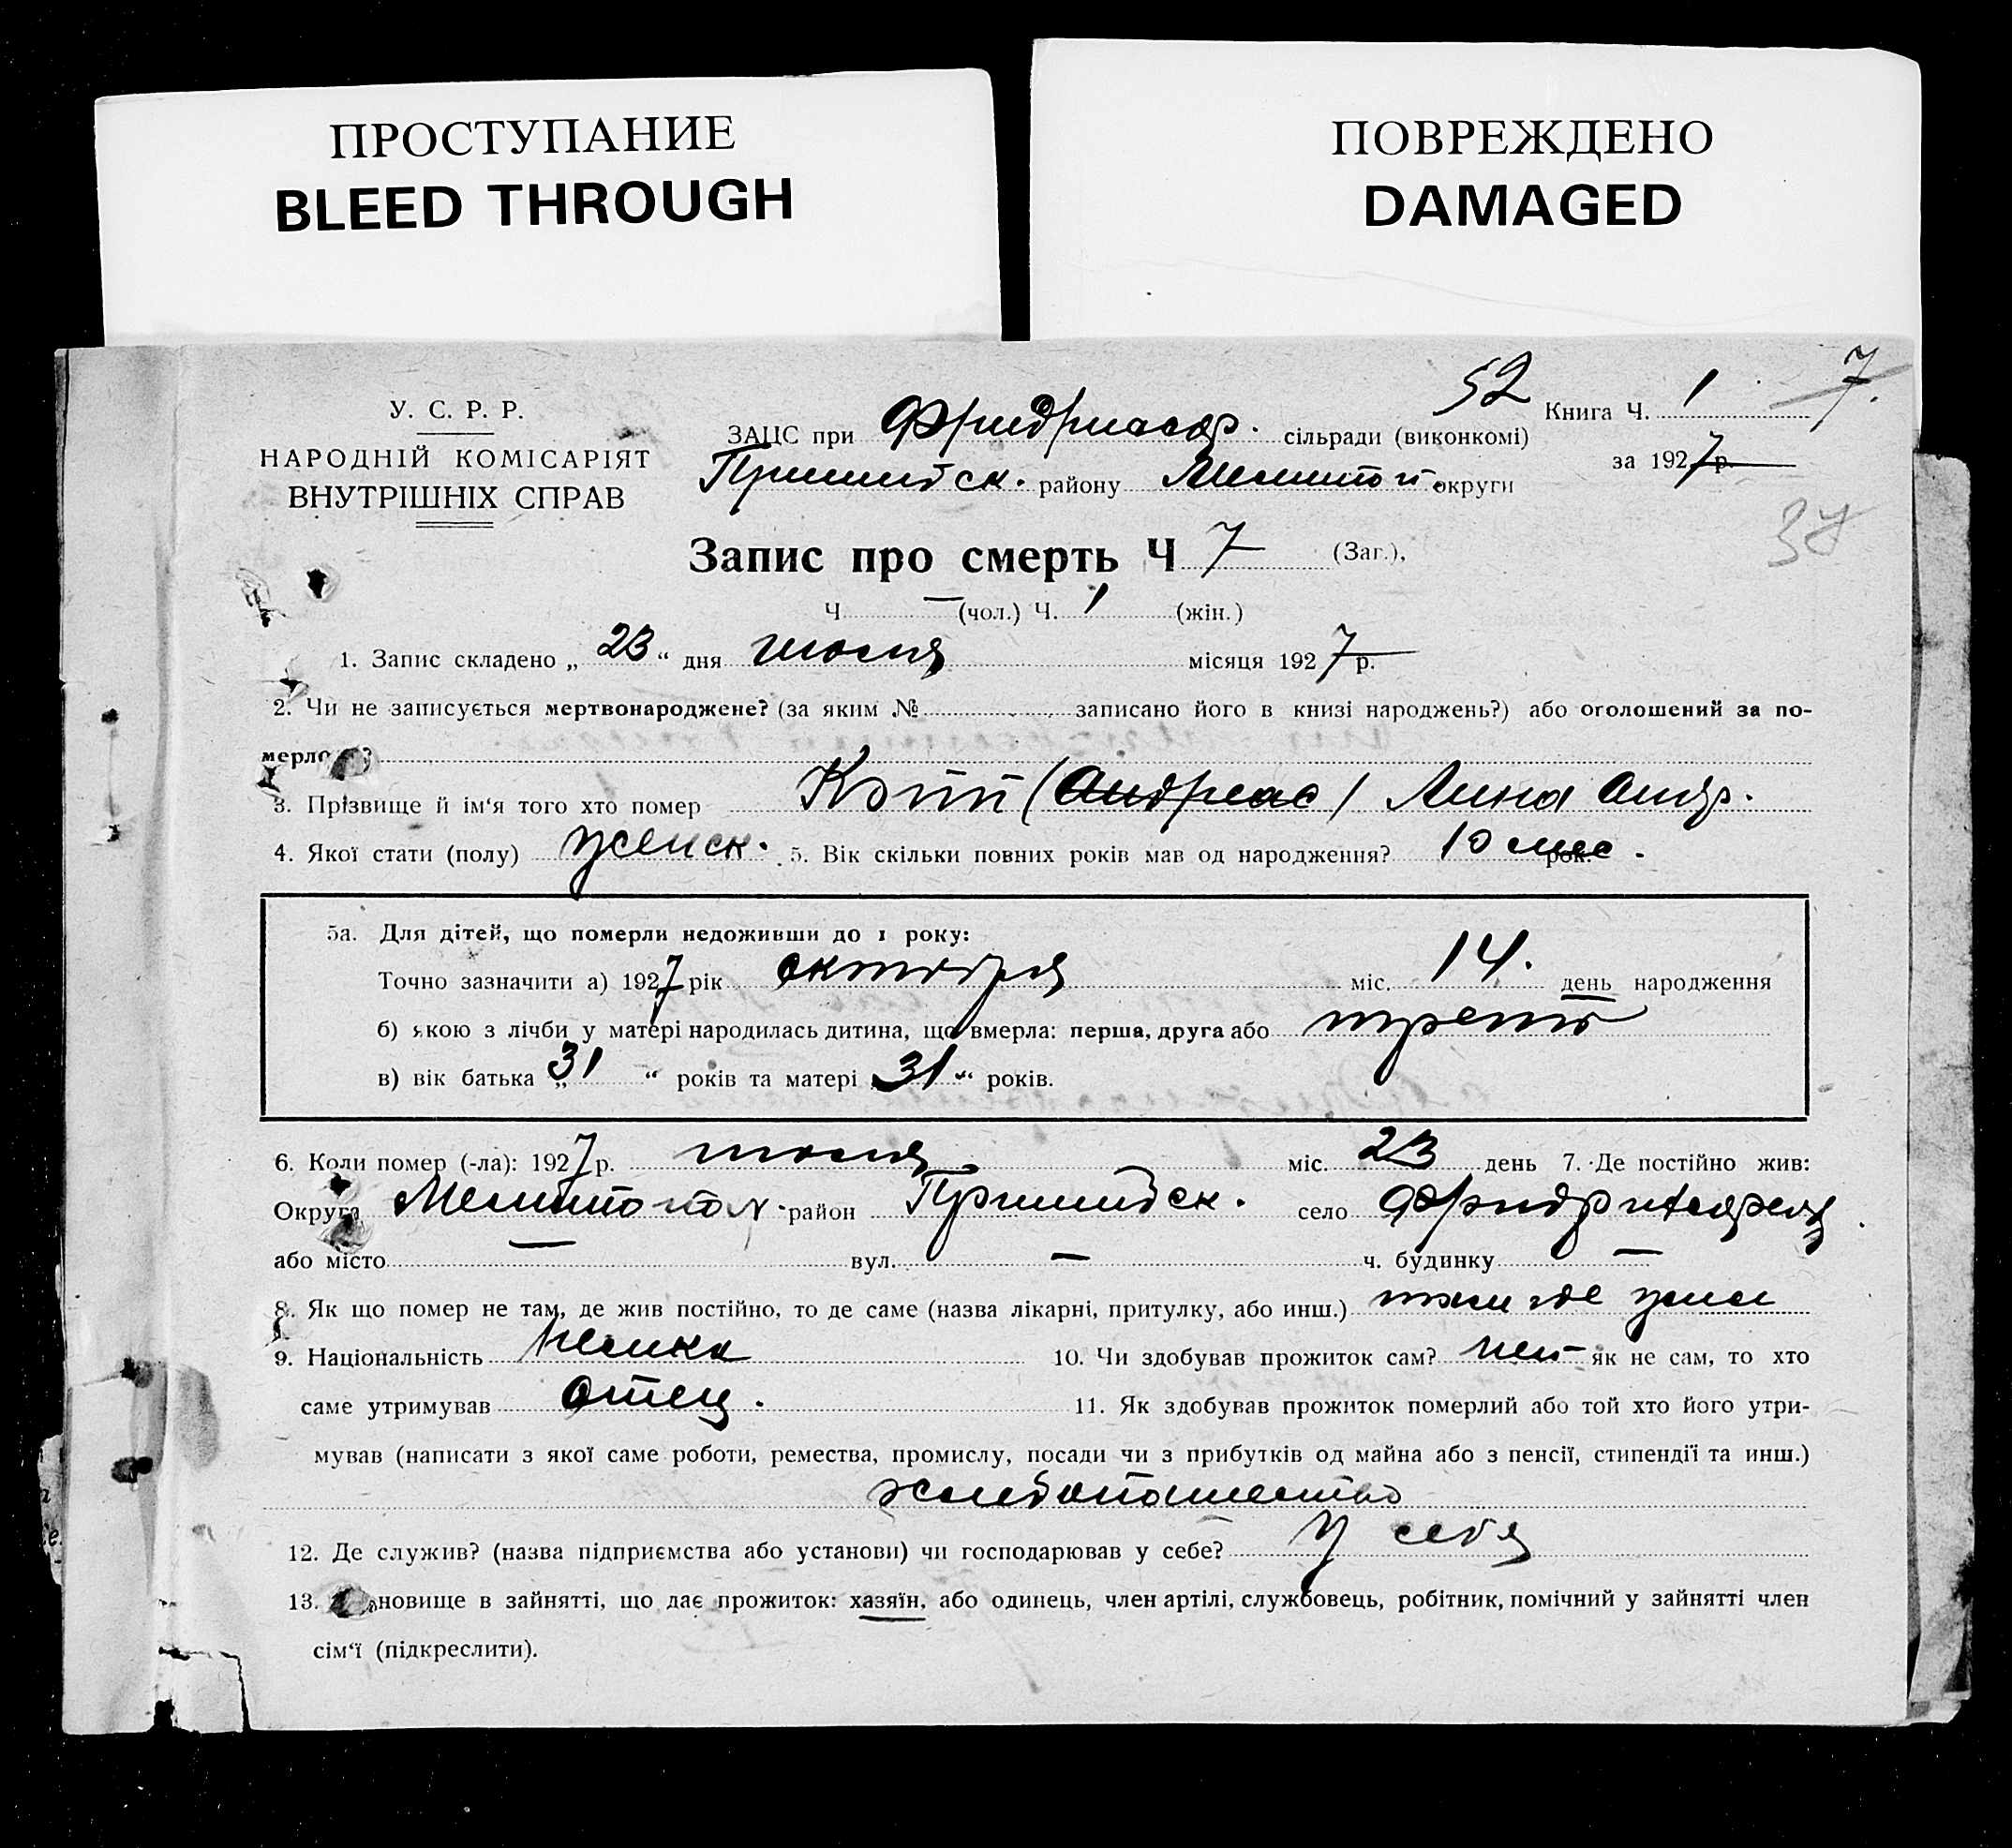 ПРОСТУПАНИЕ
BLEED THROUGH
ПОВРЕЖДЕНО
DAMAGED
52
У. С. Р. Р.
НАРОДНІЙ КОМІСАРІЯТ
ВНУТРІШНІХ СПРАВ
ЗАЦС при сільради (виконкомі)
Пришибск. району Мелитоп. округи
Книга Ч. 1 7.
за 1927 р.
37
Запис про смерть Ч 7 (Заг.),
Ч — (чол.) Ч. 1 (жін.)
1. Запис складено „ 23 “ дня июля місяця 1927 р.
2. Чи не записується мертвонароджене? (за яким № записано його в книзі народжень?) або оголошений за по-
мерло ?
3. Прізвище й ім‘я того хто помер (Андреас) Анна Андр.
4. Якої стати (полу) женск. 5. Вік скільки повних років мав од народження? 10 мес рок.
5а. Для дітей, що померли недоживши до 1 року:
Точно зазначити а) 1927 рік октября міс. 14. день народження
б) якою з лічби у матері народилась дитина, що вмерла: перша, друга або
в) вік батька „ 31 “ років та матері „ 31 “ років.
6. Коли помер (-ла): 1927 р. июля міс. 23 день 7. Де постійно жив:
Округа район Пришибск. село
або місто — вул. — ч. будинку —
8. Як що помер не там, де жив постійно, то де саме (назва лікарні, притулку, або инш.) там где
9. Національність немка 10. Чи здобував прожиток сам? нет як не сам, то хто
саме утримував отец. 11. Як здобував прожиток померлий або той хто його утри-
мував (написати з якої саме роботи, ремества, промислу, посади чи з прибутків од майна або з пенсії, стипендії та инш.)
хлебопашество
12. Де служив? (назва підприємства або установи) чи господарював у себе? У себя
13. новище в зайнятті, що дає прожиток: хазяїн, або одинець, член артілі, службовець, робітник, помічний у зайнятті член
сім‘ї (підкреслити).